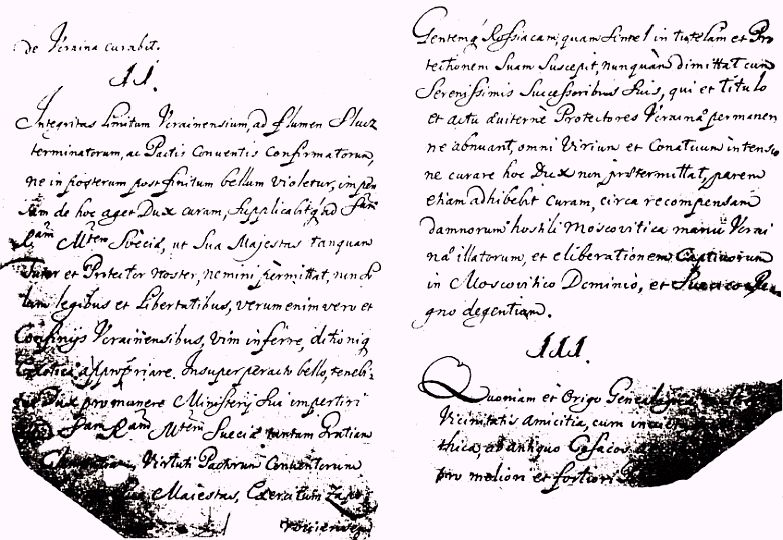 de Ucraina curabit.
II.
Integritas limitum Ucrainensium, ad flumen Slucz
terminatorum, ac Pactis Conventis confirmatorum,
ne in posterum post finitum bellum violetur, impen
sam de hoc aget Dux curam, supplicabitq3 ad Sam
Ram Mtem Sveciæ, ut Sua Majestas tanquam
Tutor et Protector noster, nemini permittat, nundū
tum legibus et Libertatibus, verum enim vero et
Confinijs Ucrainensibus, vim inferre, ditioniq
appropriare. Insuper peracto bello, tenebi-
tur Dux pro munere Ministerij Sui impertiri
Sam Ram Mtem Sueciæ tantam gratiam
Virtuti Pactorum Conventorum
Maiestas, Exercitum Zapo
roviensem
Gentemq Rossiacam, quam simel in tutelam et Pro
tectionem Suam Suscepit, nunquam dimittat cum
Serenissimis Successoribus Suis, qui et titulo
et actu æviterne Protectores Ucrainæ permanere
ne abnuant, omni Virium et Conatuum intensio
ne curare hoc Dux non prætermittat, parem
etiam adhibebit curam, circa recompensam
damnorum hostili Moscovitica manu Ucrai
næ illatorum, et eliberationem Captivorum
in Moscovitico Dominio, et Suecico Re
gno degentium.
III.
Quoniam et Origo Genealogica
Vicinitatis Amicitia, cum
thica, ab antiquo Cosacos
pro meliori et fortiori